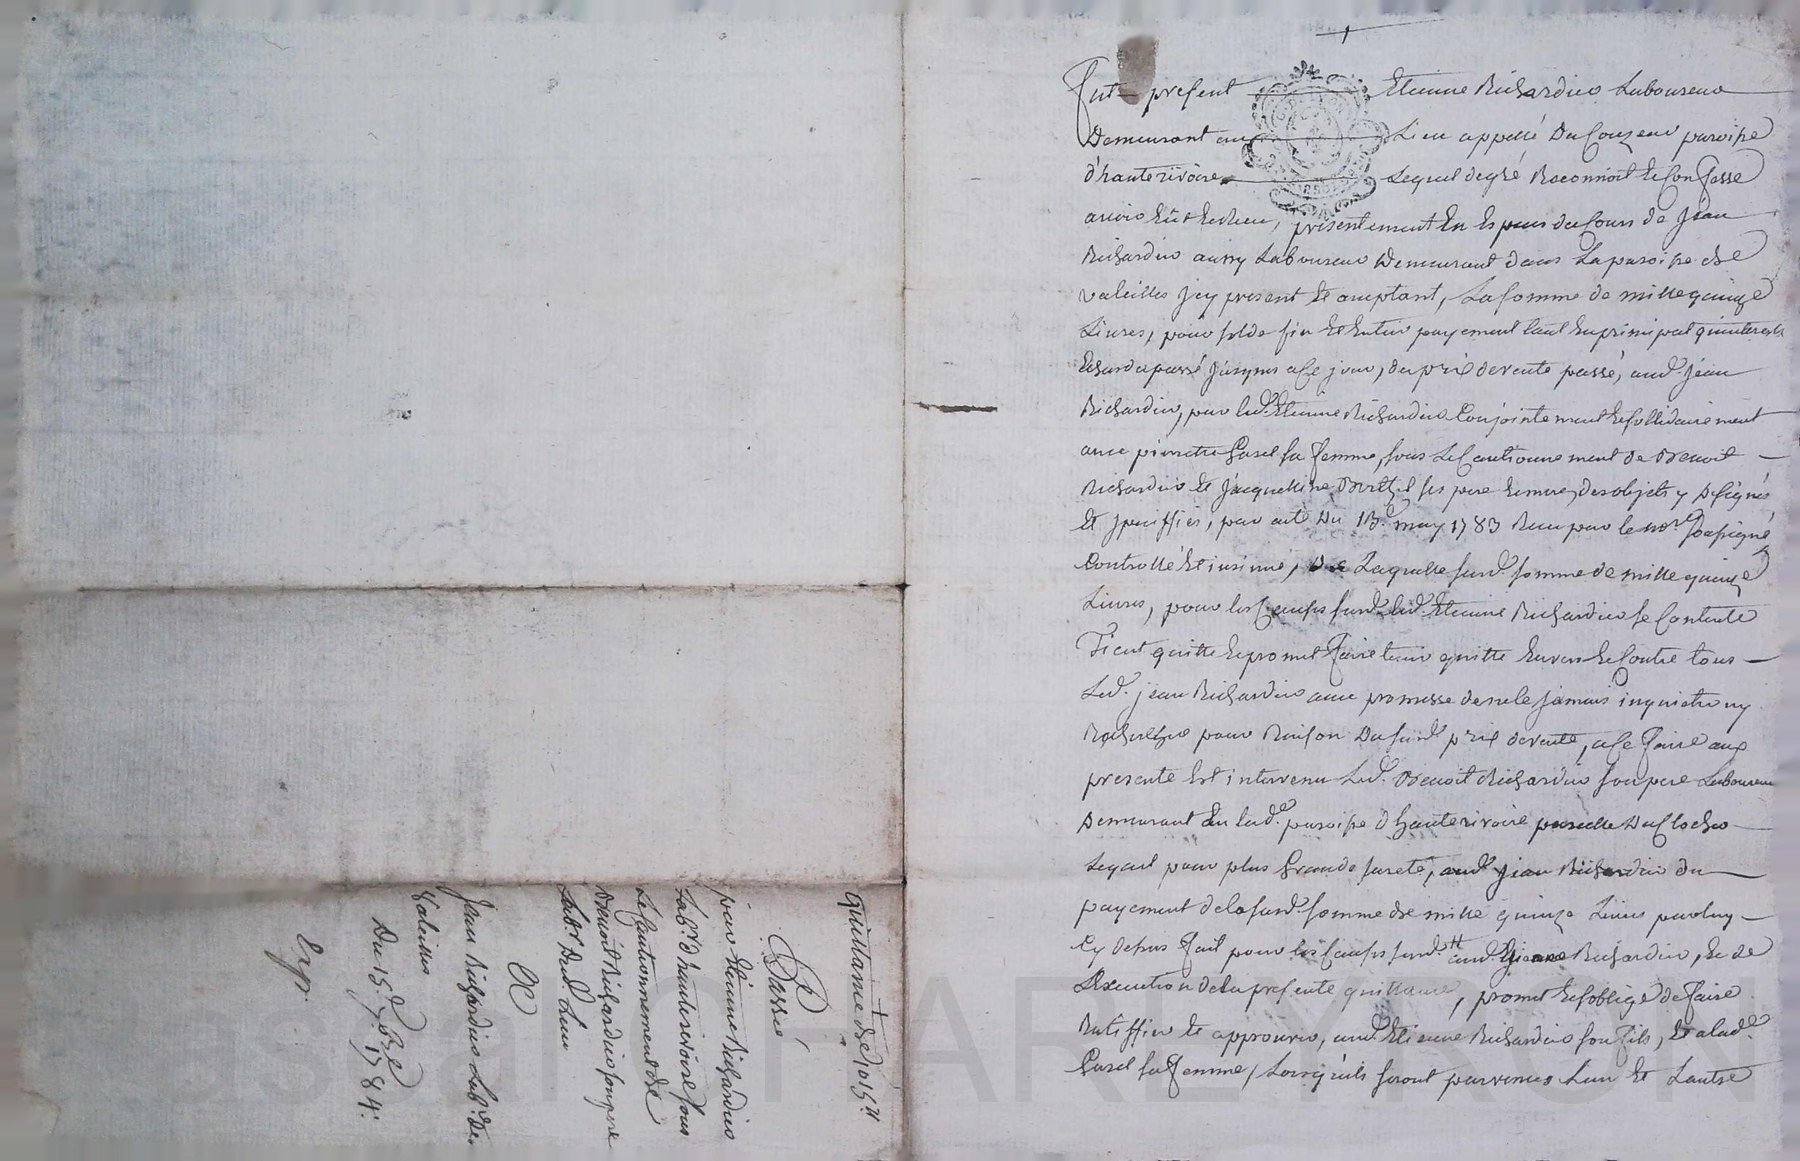 Fut présent Etienne Richardier Laboureur
Demeurant au Lieu appellé Du Couzeau paroisse
d'hauterivoire Lequel degré Reconnoit et Confesse
avoir Eüt et Recu, présentement En Especes du Cours de jean
Richardier aussy Laboureur Demeurant dans La paroisse de
valeilles jcy present et acceptant, La somme de mille quinze
Livres, pour solde fin et Entier payement tant En principal qu'interests
jusques a Ce jour, du prix de vente passé, aud. jean
Richardier, par led. Etienne Richardier Conjointement et sollidairement
avec pierrette Garel sa femme, sous Le Cautionnement de Benoit
Richardier et jacquelline ses pere et mere, des objets y Désignés
et speciffiés, par acte Du 13.e may 1783 Recu par le no.re soussigné
Controllé et insinué, De Laquelle susd. somme de mille quinze
Livres, pour les Causes susd. led. Etienne Richardier se Contente
Tient quitte et promet faire tenir quitte Envers et Contre tous
Led. jean Richardier avec promesse de ne le jamais inquietter ny
Rechercher pour Raison Du susd. prix de vente, a Ce faire aux
presente Est intervenu Led. Benoit Richardier son pere Laboureur
Demeurant En lad.e paroisse d'hauterivoire parcelle Du Clocher
Lequel pour plus Grande sureté, aud. jean Richardier du
payement de la susd. somme de mille quinze Livres par luy
Cy dessus fait pour les Causes susd. aud. Etienne Richardier, et de
L'Execution de la presente quittance, promet et s'oblige de faire
Ratiffier et approuver, aud. Etienne Richardier son fils, et a lad.e
Garel sa femme, Lorsqu'ils seront parvenus L'un et L'autre
Quittance de 1015.ll
Passée
par Etienne Richardier
Lab.r d'hauterivoire sous
Le Cautionnement de
Benoit Richardier son pere
Lab.r dud. Lieu
A
Jean Richardier Lab.r De
Valeilles
Du 15.e 7.bre 1784.
Exp.